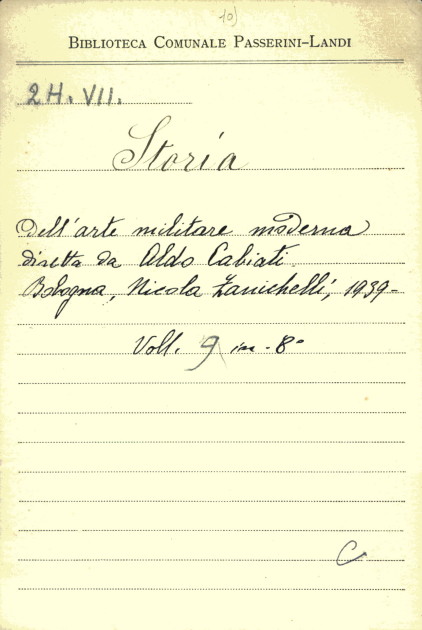 10)
BIBLIOTECA COMUNALE PASSERINI-LANDI
2H. VII.
Storia
Dell'arte militare moderna
diretta da Aldo Cabiati
Bologna, Nicola Zanichelli, 1939-
Voll. 9 in-8°
C